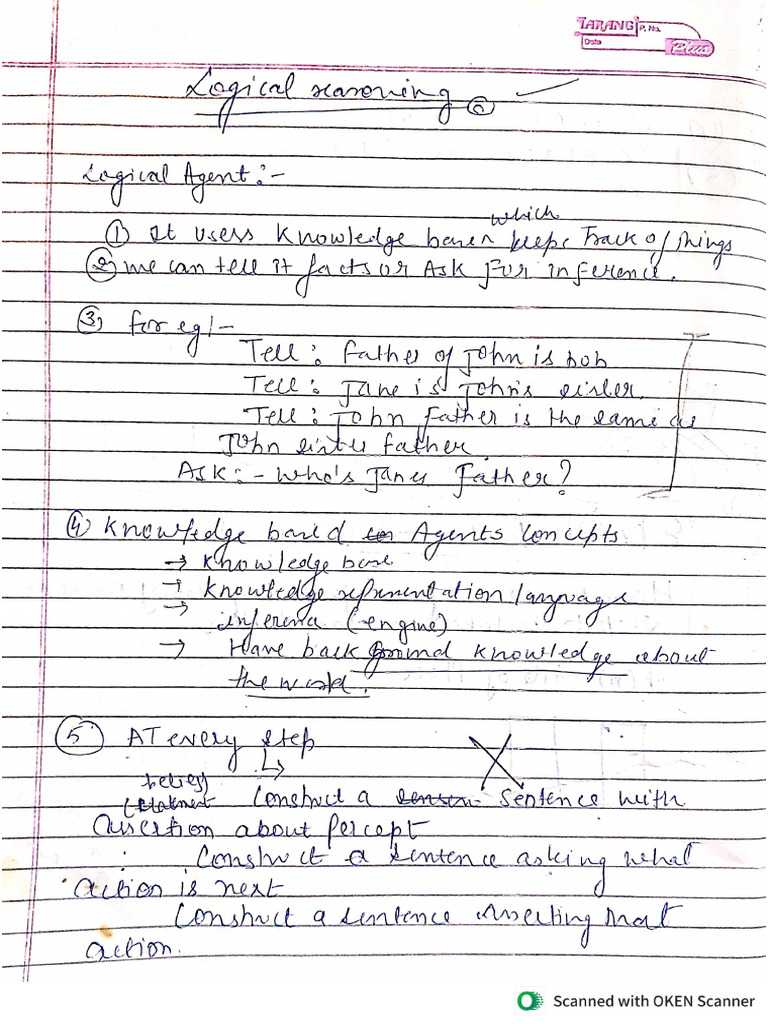 TARANG P. No.
Date Plus
Logical reasoning 6
Logical Agent :-
which
① It usess knowledge base keeps Track of things
② we can tell it facts or Ask For inference.
③ for eg :-
Tell : Father of John is bob
Tell : Jane is John's sister.
Tell : John Father is the same as
John sister father
Ask :- Who's Janes Father?
④ Knowledge based Agents concepts
→ Knowledge base
→ Knowledge representation language
→ inference (engine)
→ Have back ground knowledge about
the world.
⑤ AT every step
↳
(statement Construct a Sentence with
assertion about percept
Construct a sentence asking what
action is next
Construct a sentence asserting that
action.
Scanned with OKEN Scanner